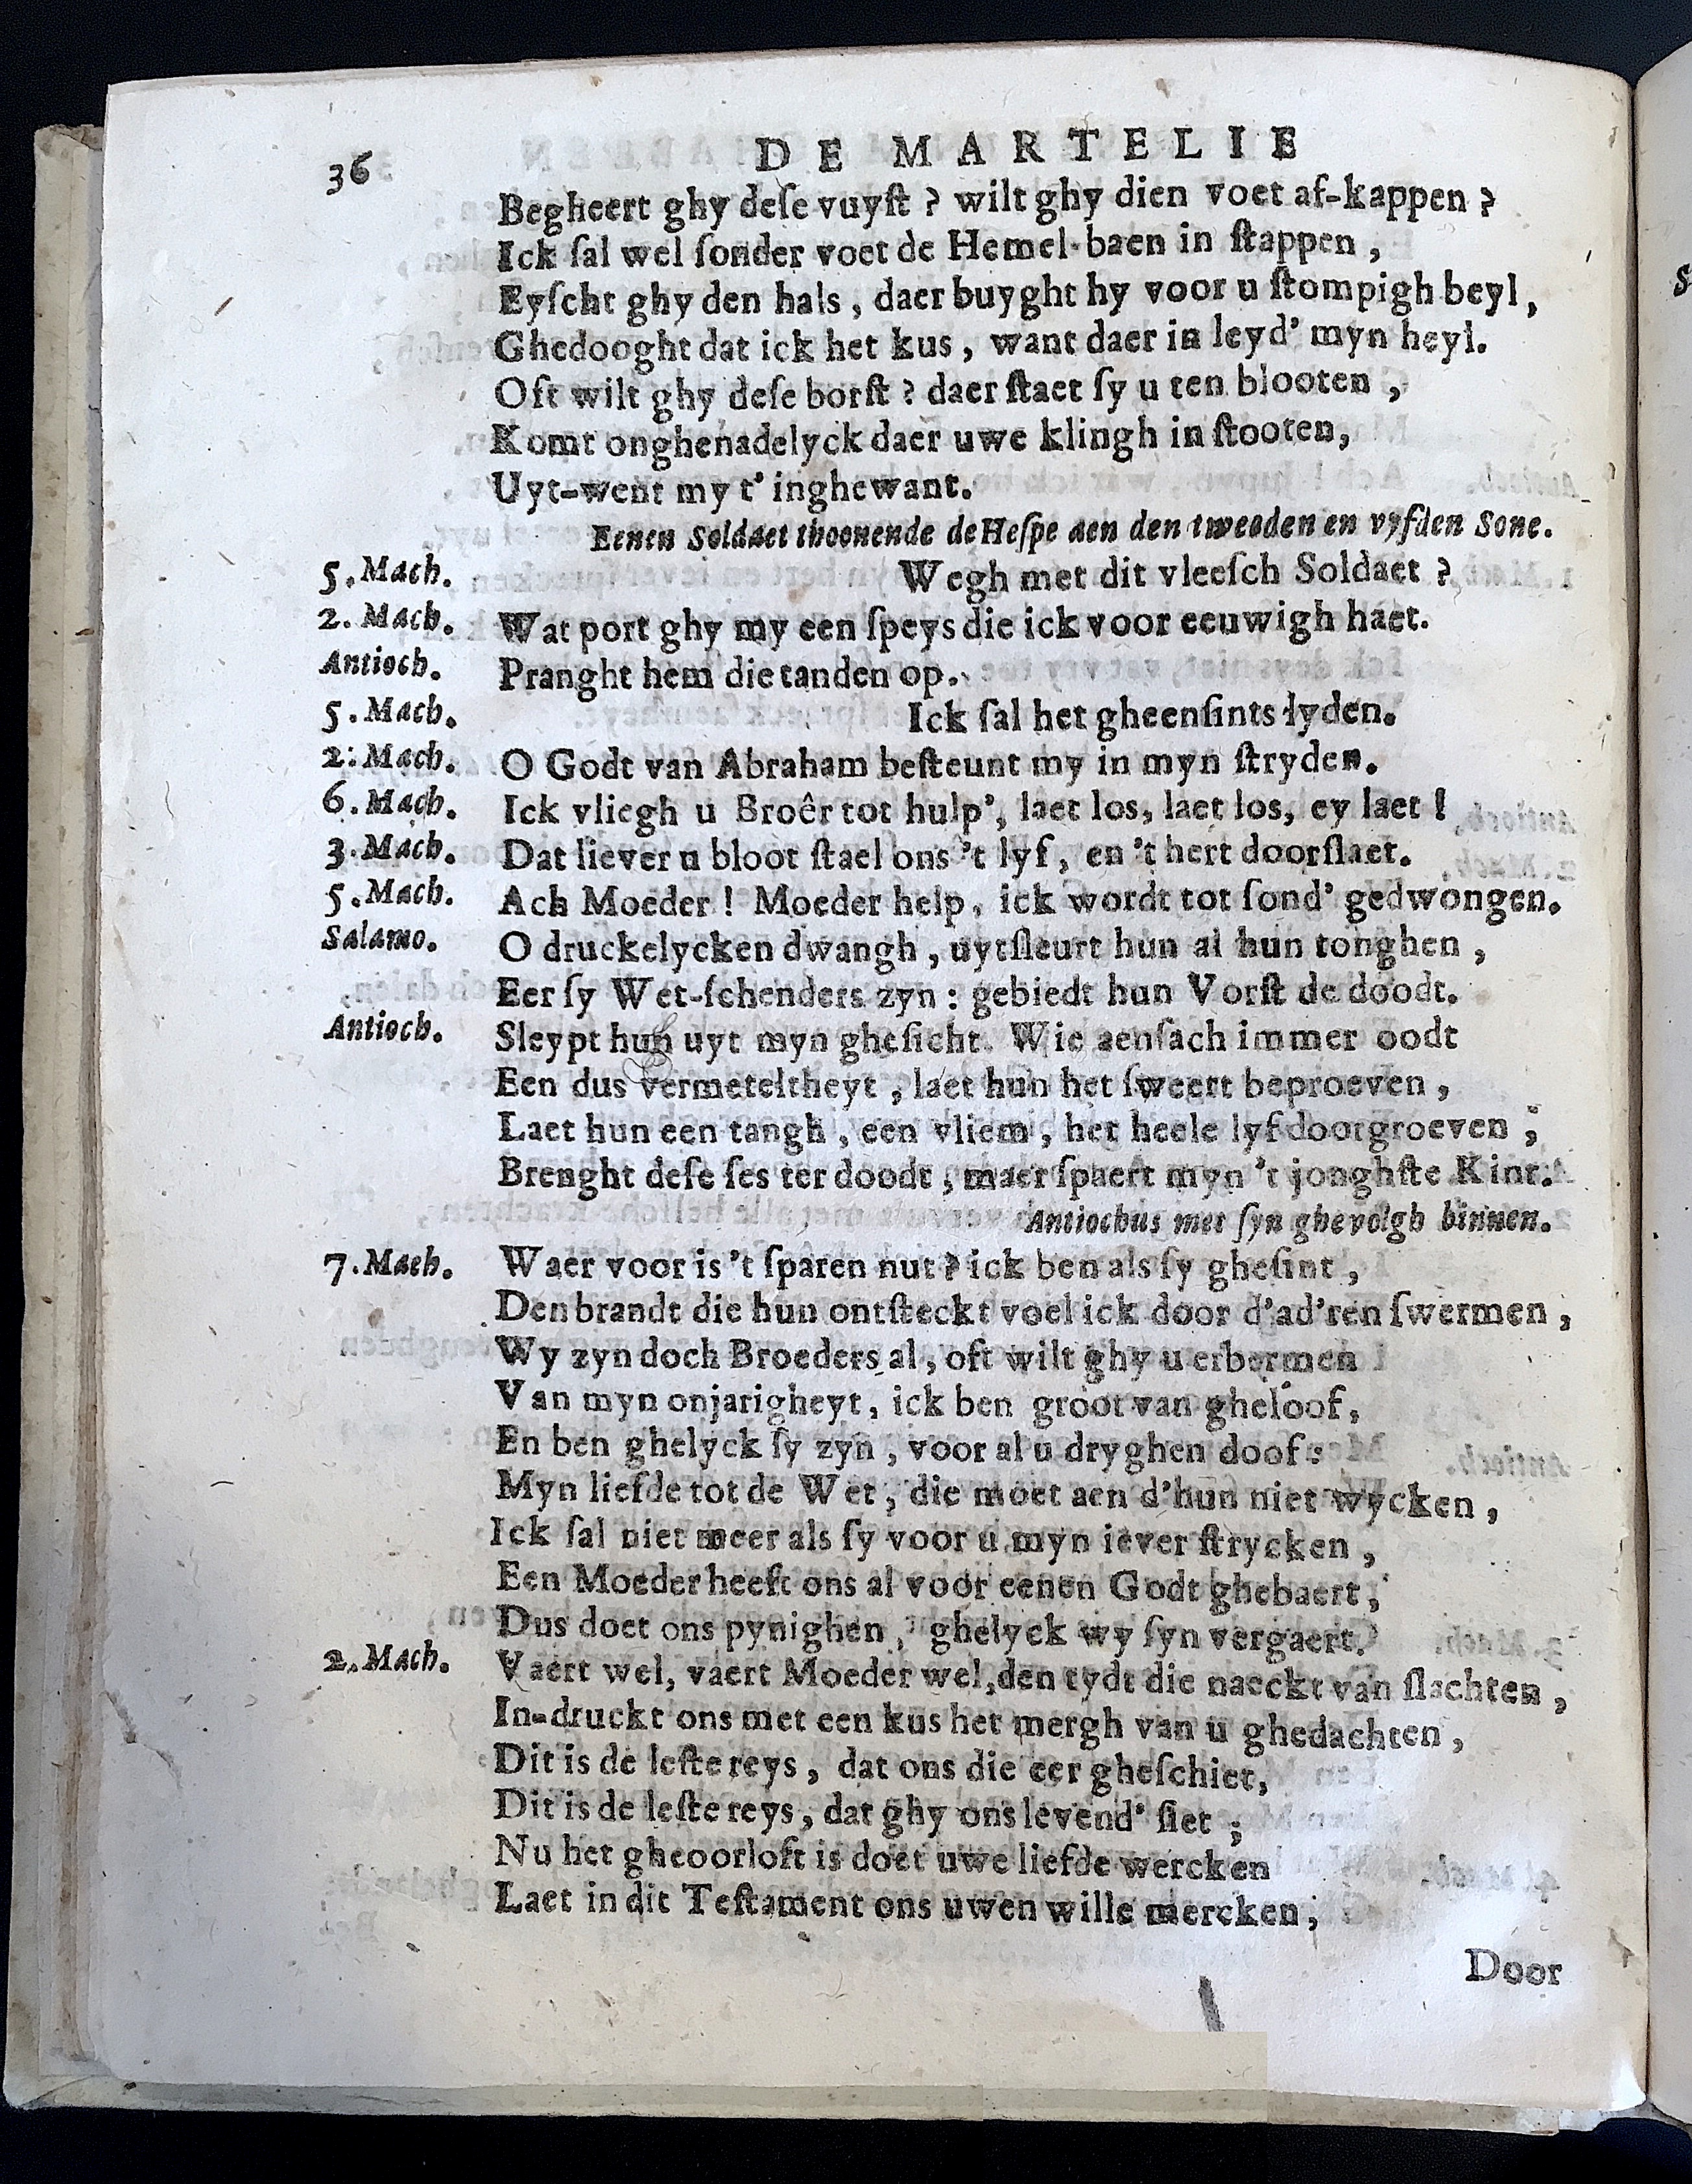 36 DE MARTELIE
Begheert ghy deſe vuyſt ? wilt ghy dien voet af-kappen ?
Ick ſal wel ſonder voet de Hemel-baen in ſtappen ,
Eyſcht ghy den hals , daer buyght hy voor u ſtompigh beyl ,
Ghedooght dat ick het kus , want daer in leyd' myn heyl.
Oft wilt ghy deſe borſt ? daer ſtaet ſy u ten blooten ,
Komt onghenadelyck daer uwe klingh in ſtooten,
Uyt-went my t' inghewant.
Eenen Soldaet thoonende de Heſpe aen den tweeden en vyfden Sone.
5. Mach. Wegh met dit vleeſch Soldaet ?
2. Mach. Wat port ghy my een ſpeys die ick voor eeuwigh haet.
Antioch. Pranght hem die tanden op.
5. Mach. Ick ſal het gheenſints lyden.
2. Mach. O Godt van Abraham beſteunt my in myn ſtryden.
6. Mach. Ick vliegh u Broêr tot hulp', laet los, laet los, ey laet !
3. Mach. Dat liever u bloot ſtael ons 't lyf , en 't hert doorſlaet.
5. Mach. Ach Moeder ! Moeder help, ick wordt tot ſond' gedwongen.
Salamo. O druckelycken dwangh , uytſleurt hun al hun tonghen ,
Eer ſy Wet-ſchenders zyn : gebiedt hun Vorſt de doodt.
Antioch. Sleypt hun uyt myn gheſicht. Wie aenſach immer oodt
Een dus vermeteltheyt , laet hun het ſweert beproeven ,
Laet hun een tangh , een vliem , het heele lyf doorgroeven ;
Brenght deſe ſes ter doodt , maer ſpaert myn 't jonghſte Kint.
Antiochus met ſyn ghevolgh binnen.
7. Mach. Waer voor is 't ſparen nut ? ick ben als ſy gheſint ,
Den brandt die hun ontſteckt voel ick door d'ad'ren ſwermen ,
Wy zyn doch Broeders al , oft wilt ghy u erbermen
Van myn onjarigheyt , ick ben groot van gheloof ,
En ben ghelyck ſy zyn , voor al u dryghen doof :
Myn liefde tot de Wet , die moet aen d'hun niet wycken ,
Ick ſal niet meer als ſy voor u myn iever ſtrycken ,
Een Moeder heeft ons al voor eenen Godt ghebaert ,
Dus doet ons pynighen , ghelyck wy ſyn vergaert.
2. Mach. Vaert wel, vaert Moeder wel, den tydt die naeckt van ſlachten ,
In-druckt ons met een kus het mergh van u ghedachten ,
Dit is de leſte reys , dat ons die eer gheſchiet,
Dit is de leſte reys, dat ghy ons levend' ſiet ;
Nu het gheoorloft is doet uwe liefde wercken
Laet in dit Teſtament ons uwen wille mercken ;
Door